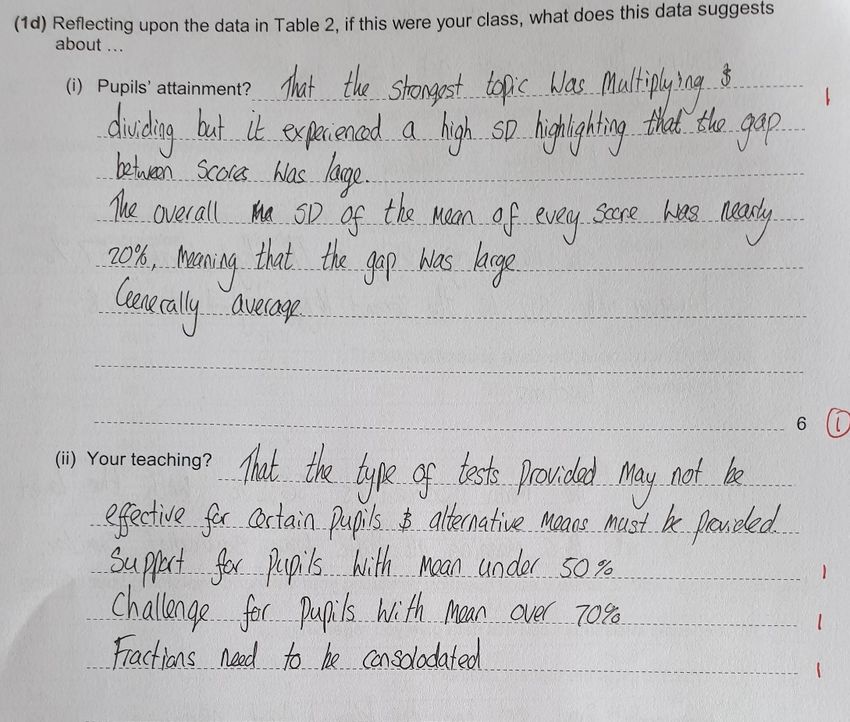 (1d) Reflecting upon the data in Table 2, if this were your class, what does this data suggests
about ...
(i) Pupils' attainment? That the strongest topic was Multiplying &
1
dividing but it experienced a high SD highlighting that the gap
between scores was large.
The overall SD of the mean of every score was nearly
20%, meaning that the gap was large
Generally average.
6 1
(ii) Your teaching? That the type of tests provided may not be
effective for certain pupils & alternative means must be provided.
Support for pupils with mean under 50%
1
Challenge for pupils with mean over 70%
1
Fractions need to be consolodated
1